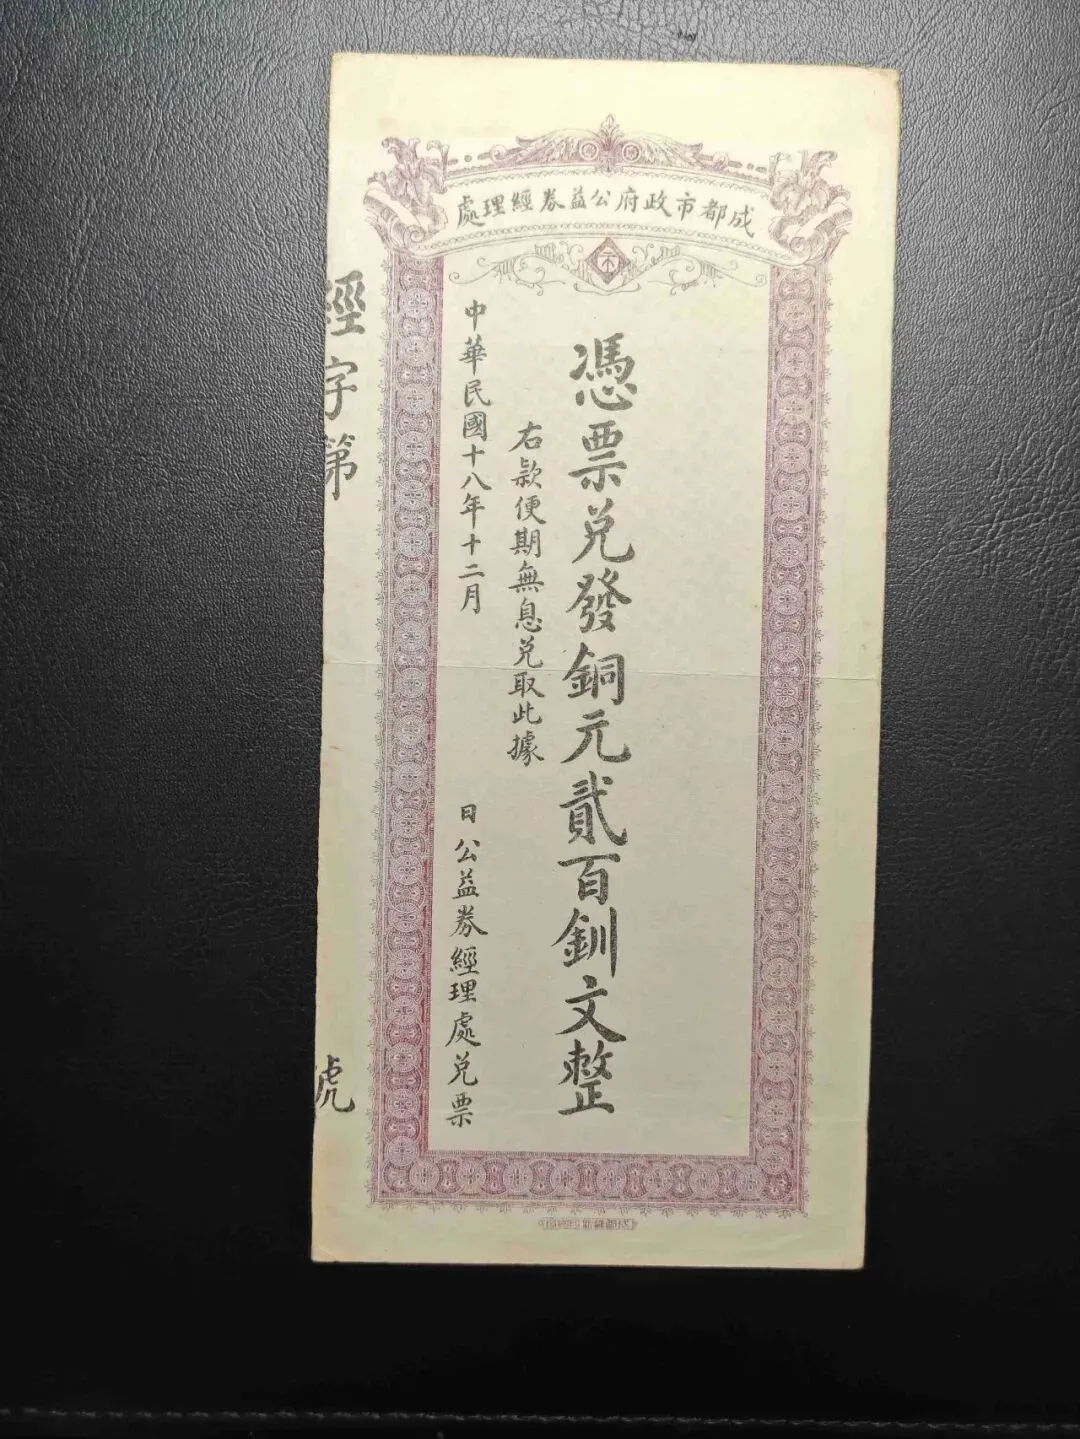 成都市政府公益券經理處
市
憑票兑發銅元貳百釧文整
右款便期無息兑取此據
中華民國十八年十二月 日公益券經理處兑票
經字第 號